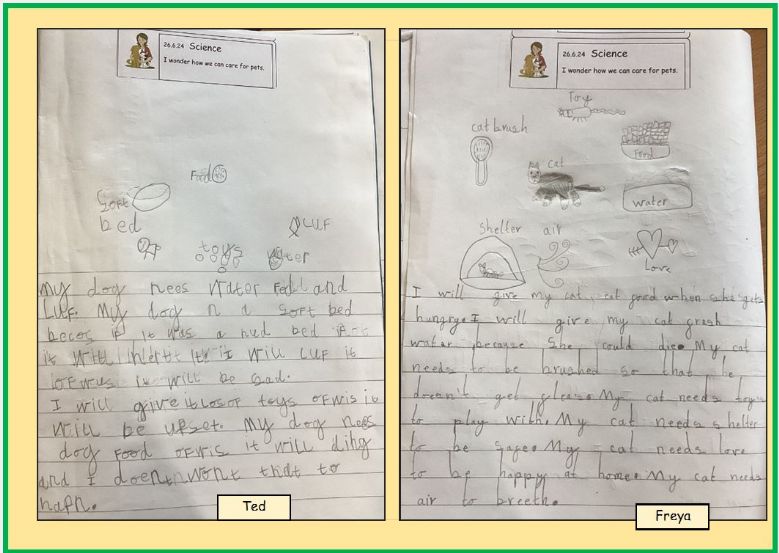 26.6.24 Science
I wonder how we can care for pets.
Food
Soft
bed
LUF
toys
water
My dog nees Water Food and
Luf. My dog n a soft bed
becos if it was a hud bed
it will I Will LUF it
ofwus it will be sad.
I will give it losof toys ofwis it
will be upset. My dog nees
dog food ofwis it will ding
and I doent wont that to
hapn.
Ted
26.6.24 Science
I wonder how we can care for pets.
Toy
cat brush
Food
cat
water
Shelter air
Love
I will give my cat cat food when she gets
hungry I will give my cat fresh
water because She could die. My cat
needs to be brushed so that he
doesn't get fleas. My cat needs toys
to play with. My cat needs shelter
to be safe. My cat needs love
to be happy at home. My cat needs
air to breeth.
Freya